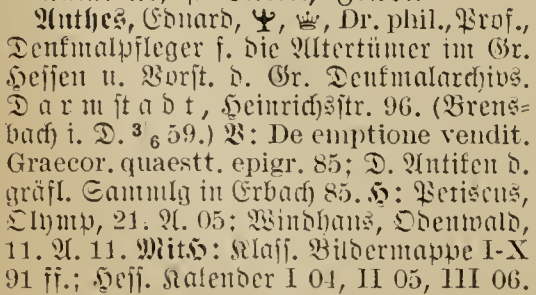 Anthes, Eduard, Dr. phil., Prof.,
Denkmalpfleger f. die Altertümer im Gr.
Hessen u. Vorst. d. Gr. Denkmalarchivs.
Darmstadt, Heinrichsstr. 96. (Brens-
bach i. O. ³ ₆ 59.) V: De emptione vendit.
Graecor. quaestt. epigr. 85; D. Antiken d.
gräfl. Sammlg in Erbach 85. H: Petiscus,
Olymp, 21. A. 05; Windhaus, Odenwald,
11. A. 11. MitH: Klass. Bildermappe I-X
91 ff.; Hess. Kalender I 04, II 05, III 06.